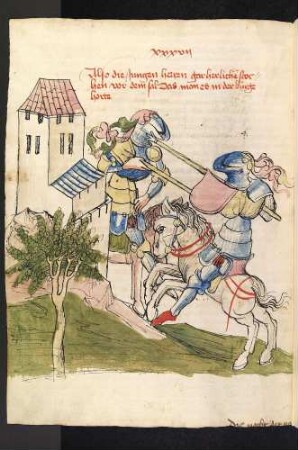 xxxvii
Also die Jungen herren gar herliche stoc
hen vor dem sal Das mon es in der burge
horte